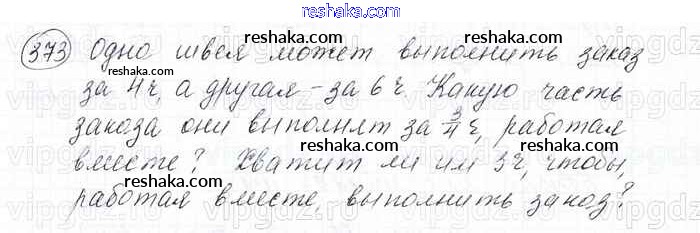 reshaka.com
373 Одно швея может выполнить заказ
reshaka.com
за 4 ч, а другая - за 6 ч. Какую часть
reshaka.com reshaka.com
заказа они выполнят за 3/4 ч, работая
reshaka.com
вместе? Хватит ли им 3 ч, чтобы,
reshaka.com reshaka.com
работая вместе, выполнить заказ?